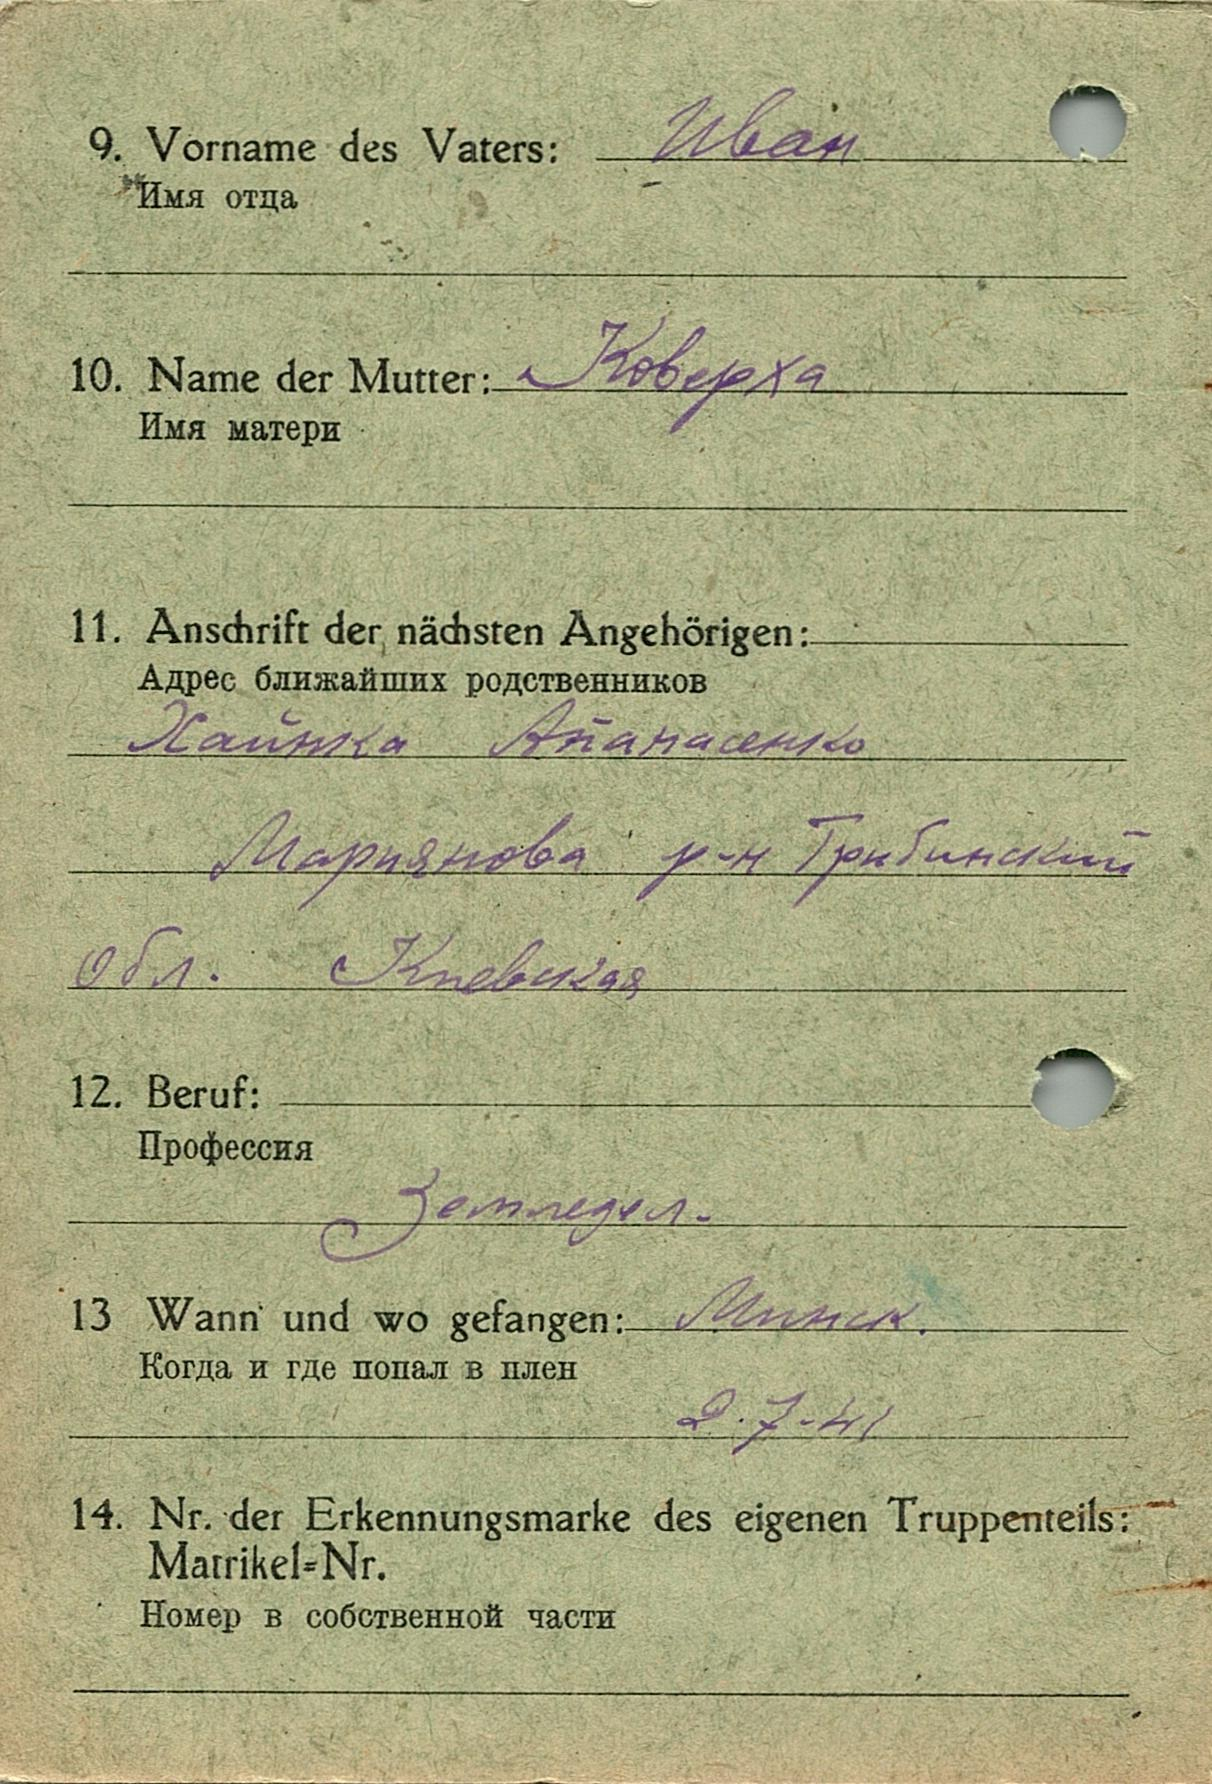 9. Vorname des Vaters: Иван
Имя отца
10. Name der Mutter: Коверха
Имя матери
11. Anschrift der nächsten Angehörigen:
Адрес ближайших родственников
Хайнка Апанасенко
Марянова р-н Грибинский
Обл. Киевская
12. Beruf:
Профессия
Земледел.
13 Wann und wo gefangen: Минск.
Когда и где попал в плен
2.7-41
14. Nr. der Erkennungsmarke des eigenen Truppenteils:
Matrikel=Nr.
Номер в собственной части